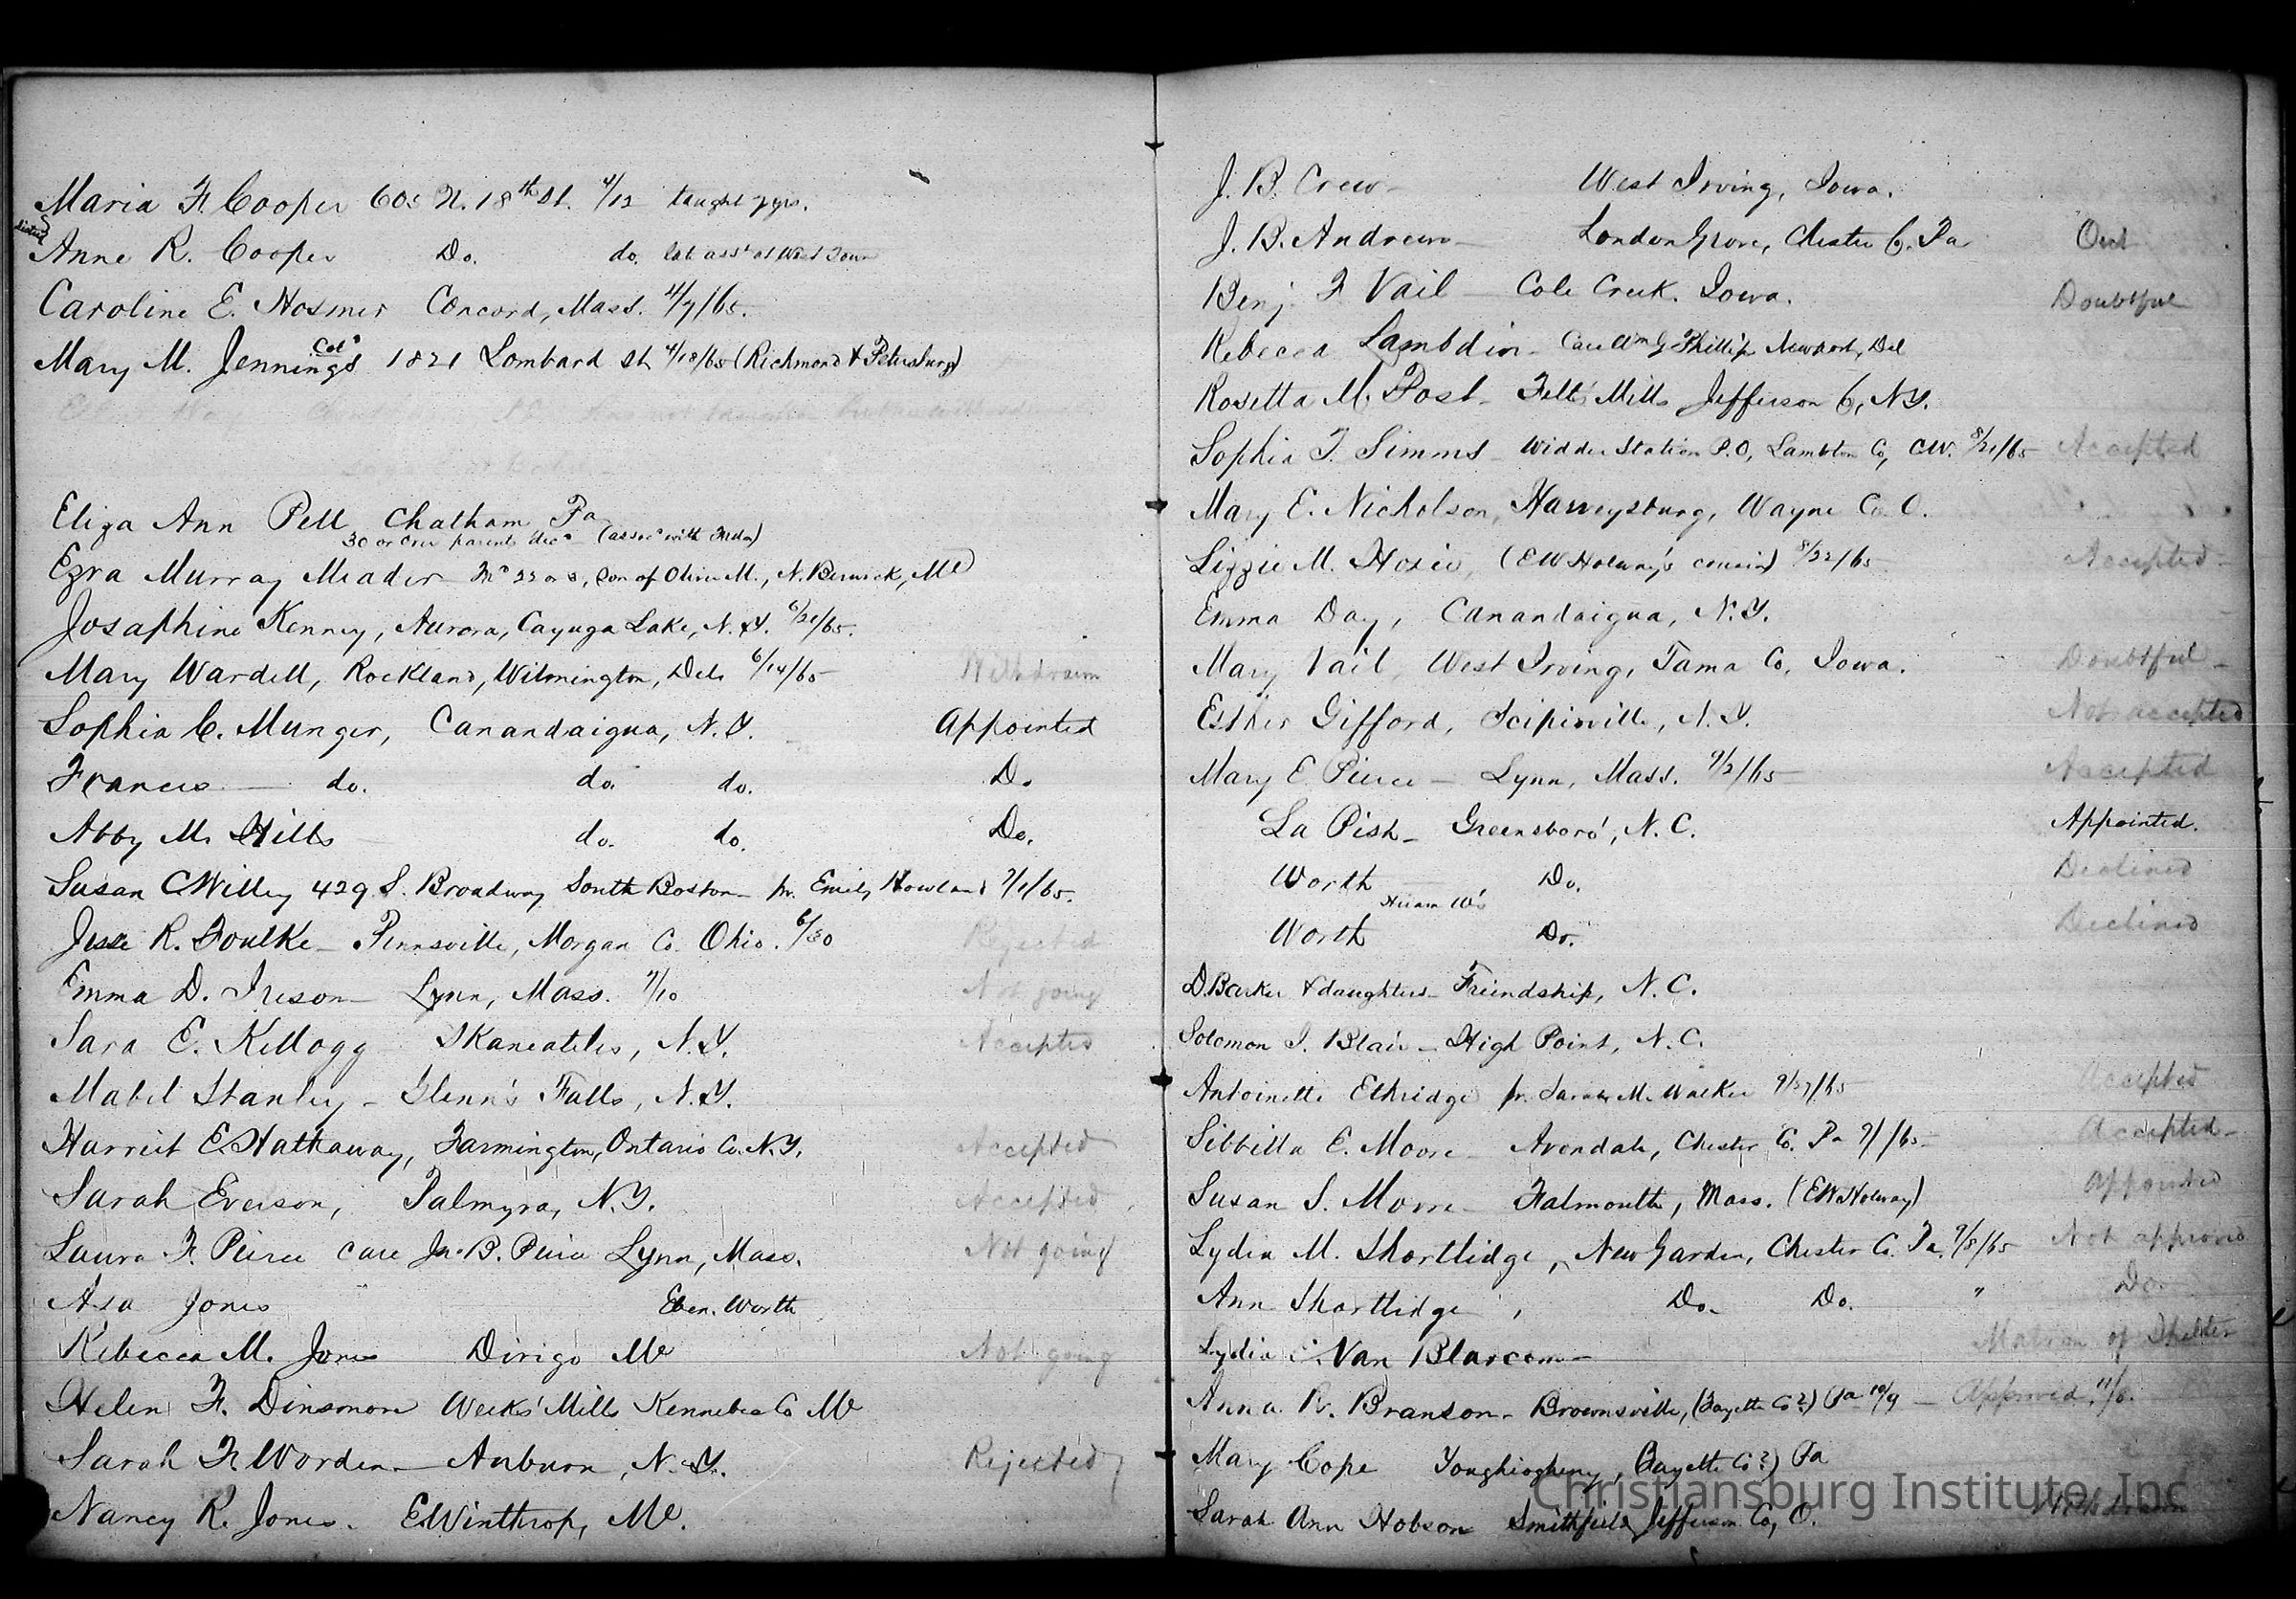 Maria F. Cooper 605 N. 18th St. 4/12 taught 7 yrs.
sisters
Anne R. Cooper Do. do. lab. asst at West Town
Caroline E. Hosmer Concord, Mass. 4/7/65.
Cold
Mary M. Jennings 1821 Lombard St. 4/18/65 (Richmond & Petersburg)
Eliza Ann Pell Chatham Pa
30 or over parents decd (assocd with Frds)
Ezra Murray Meader Md 22 or 3, Son of Oliver M., N. Berwick, Me
Josaphine Kenney, Aurora, Cayuga Lake, N.Y. 6/21/65.
Mary Wardell, Rockland, Wilmington, Del. 6/14/65 Withdrawn
Sophia C. Munger, Canandaigua, N.Y. Appointed
Frances do. do. do. Do
Abby M. Hills do. do. Do.
Susan C Willey 429 S. Broadway South Boston pr. Emily Howland 7/1/65.
Jesse R. Foulke Pennsville, Morgan Co. Ohio. 6/30 Rejected
Emma D. Ireson Lynn, Mass. 7/10 Not going
Sara E. Kellogg Skaneateles, N.Y. Accepted
Mabel Stanley Glenn's Falls, N.Y.
Harriet E. Hathaway, Farmington, Ontario Co. N.Y. Accepted
Sarah Everson, Palmyra, N.Y. Accepted
Laura F. Peirce care Jno B. Peirce Lynn, Mass. Not going
Asa Jones Eben. Worth
Rebecca M. Jones Dirigo Me Not going
Helen F. Dinsmore Weeks' Mills Kennebec Co Me
Sarah F. Worden Auburn, N.Y. Rejected
Nancy R. Jones. E. Winthrop, Me.
J. B. Crew West Irving, Iowa.
J. B. Andrews London Grove, Chester Co. Pa Out
Benj. F Vail Cole Creek. Iowa. Doubtful
Rebecca Lambdin Care Wm G Phillips Newport, Del
Rosetta M. Post Felts' Mills Jefferson Co, N.Y.
Sophia T. Simms Widder Station P.O, Lambton Co, C.W. 8/21/65 Accepted
Mary E. Nicholson, Harveysburg, Wayne Co. O.
Lizzie M. Hosie, (E W Holway's cousin) 8/22/65 Accepted
Emma Day, Canandaigua, N.Y.
Mary Vail, West Irving, Tama Co, Iowa. Doubtful
Esther Gifford, Scipioville, N.Y. Not accepted
Mary E. Pierce Lynn, Mass. 9/2/65 Accepted
La Pish Greensboro', N.C. Appointed.
Worth Do. Declined
Hiram W's
Worth Do. Declined
D. Barker & daughters Friendship, N.C.
Solomon I. Blair High Point, N.C.
Antoinette Ethridge pr. Sarah M. Walker 9/27/65 Accepted
Sibbilla E. Moore Avondale, Chester Co. Pa 9/ /65 Accepted
Susan S. Moore Falmouth, Mass. (EW Holway) Appointed
Lydia M. Shortlidge, New Garden, Chester Co. Pa. 9/8/65 Not approved
Ann Shortlidge, Do. Do. " Do.
Lydia C. Van Blarcom Matron of Shelter
Anna R. Branson Brownsville, (Fayette Co?) Pa 10/9 Approved 11/8.
Mary Cope Youghiogheny, (Fayette Co?) Pa
Sarah Ann Hobson Smithfield Jefferson Co, O. Withdrawn
Christiansburg Institute, Inc